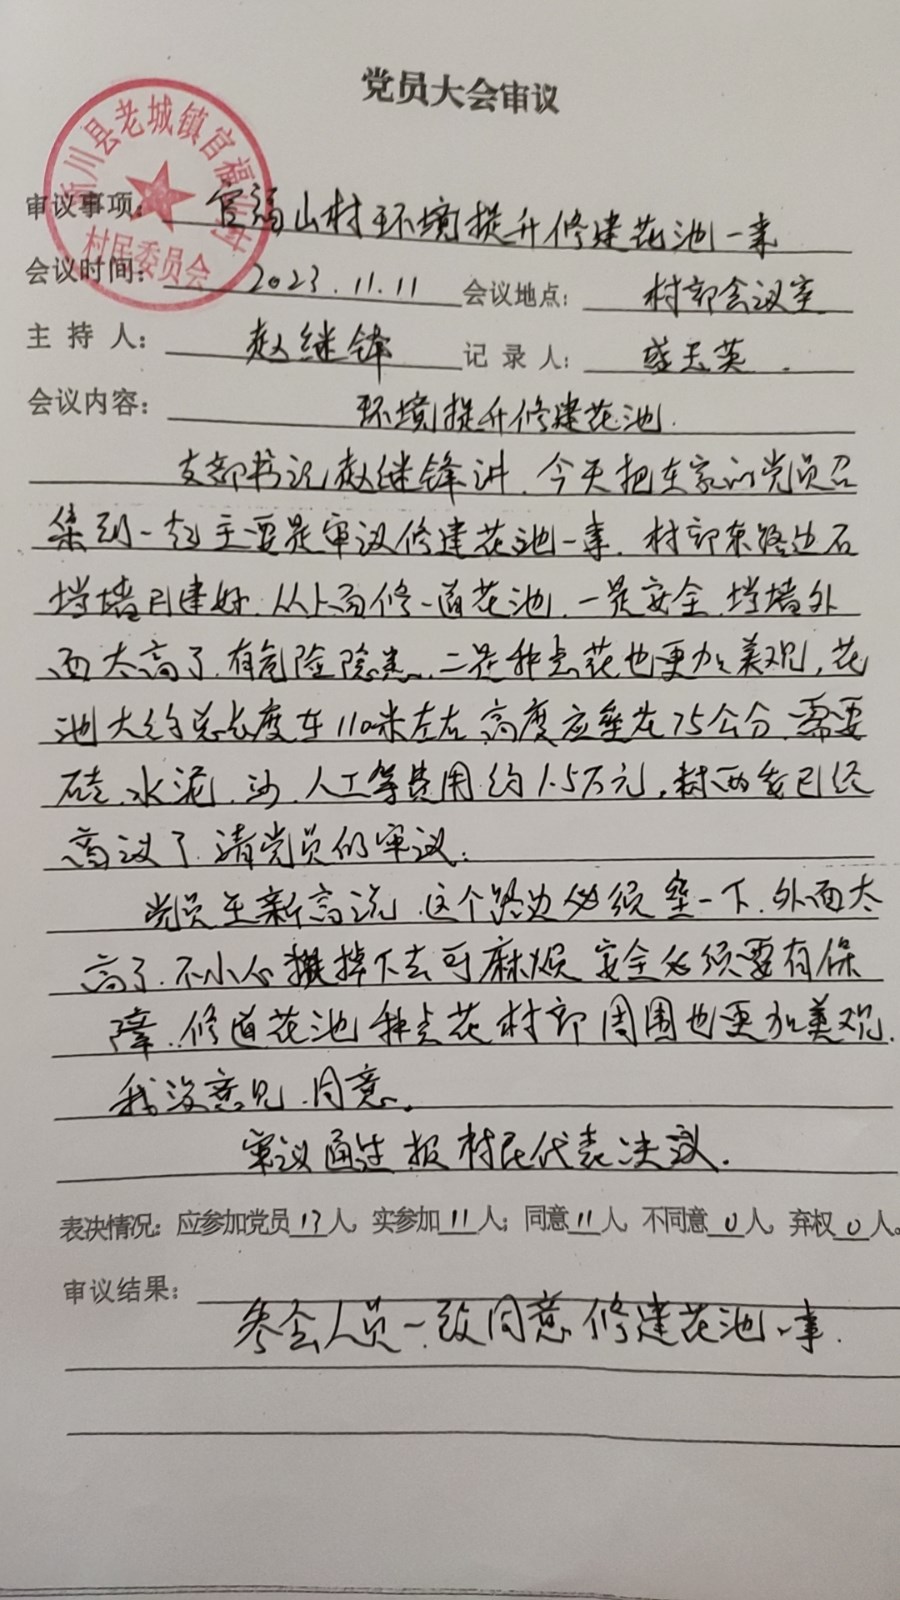 党员大会审议
淅川县老城镇官福山村
村民委员会
审议事项: 官福山村环境提升修建花池一事
会议时间: 2023.11.11 会议地点: 村部会议室
主 持 人: 赵继锋 记 录 人: 盛玉英.
会议内容: 环境提升修建花池.
支部书记赵继锋讲.今天把在家的党员召
集到一起主要是审议修建花池一事.村部东路边石
挡墙已建好.从上面修一道花池.一是安全.挡墙外
面太高了.有危险隐患.二是种点花也更加美观,花
池大约总长度在110米左右.高度应垒在75公分.需要
砖.水泥.沙.人工等费用约1.5万元,村两委已经
商议了.请党员们审议.
党员王新高说.这个路边必须垒一下.外面太
高了.不小心掉下去可麻烦.安全必须要有保
障.修道花池种点花村部周围也更加美观.
我没意见.同意。
审议通过报村民代表决议.
表决情况: 应参加党员17人, 实参加11人; 同意11人, 不同意0人, 弃权0人。
审议结果:
参会人员一致同意修建花池一事.